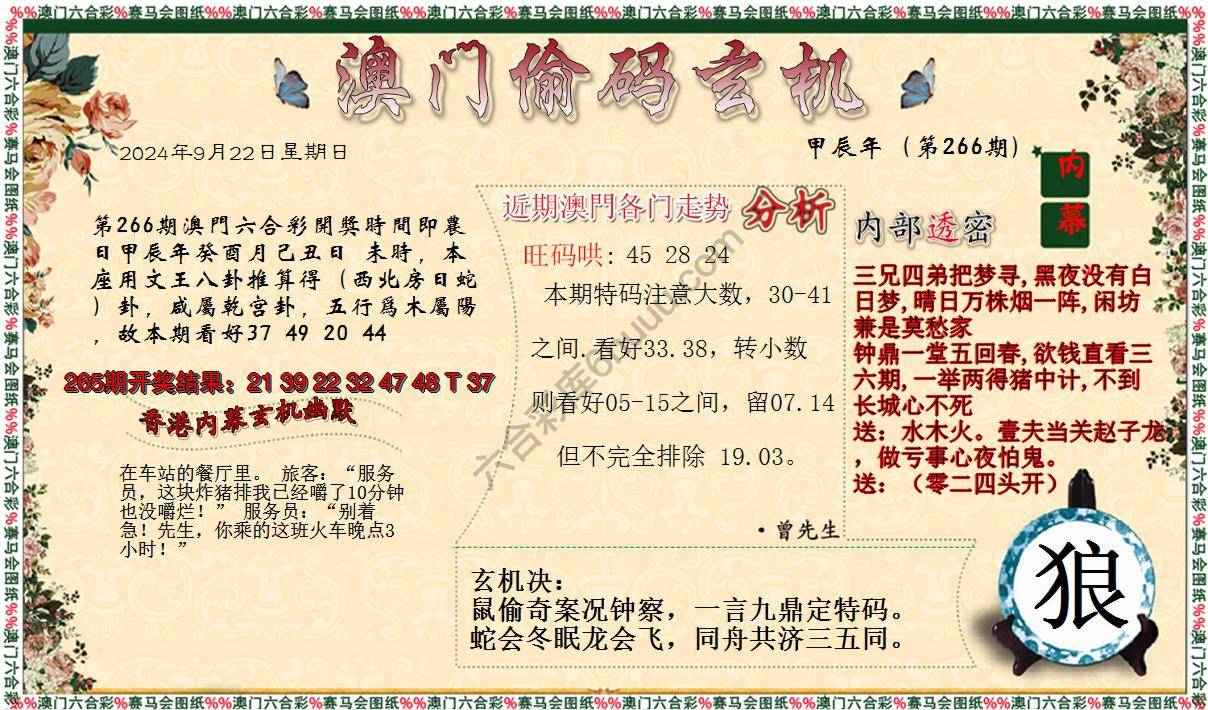 %%澳门六合彩%赛马会图纸%%澳门六合彩%赛马会图纸%%澳门六合彩%赛马会图纸%%澳门六合彩%赛马会图纸%%澳门六合彩%赛马会图纸%%澳门六合彩%赛马会图纸%%澳门六合彩%赛马会图纸%%
澳门偷码玄机
2024年9月22日星期日
甲辰年（第266期）
内幕
第266期澳門六合彩開獎時間即農
日甲辰年癸酉月己丑日 未時，本
座用文王八卦推算得（西北房日蛇
）卦，咸屬乾宫卦，五行爲木屬陽
，故本期看好37 49 20 44
265期开奖结果：21 39 22 32 47 48 T 37
香港内幕玄机幽默
在车站的餐厅里。 旅客：“服务
员，这块炸猪排我已经嚼了10分钟
也没嚼烂！” 服务员：“别着
急！先生，你乘的这班火车晚点3
小时！”
近期澳門各门走势 分析
旺码哄：45 28 24
本期特码注意大数，30-41
之间.看好33.38，转小数
则看好05-15之间，留07.14
但不完全排除 19.03。
·曾先生
内部透密
三兄四弟把梦寻,黑夜没有白
日梦,晴日万株烟一阵,闲坊
兼是莫愁家
钟鼎一堂五回春,欲钱直看三
六期,一举两得猪中计,不到
长城心不死
送：水木火。壹夫当关赵子龙
，做亏事心夜怕鬼。
送：（零二四头开）
玄机决：
鼠偷奇案况钟察，一言九鼎定特码。
蛇会冬眠龙会飞，同舟共济三五同。
狼